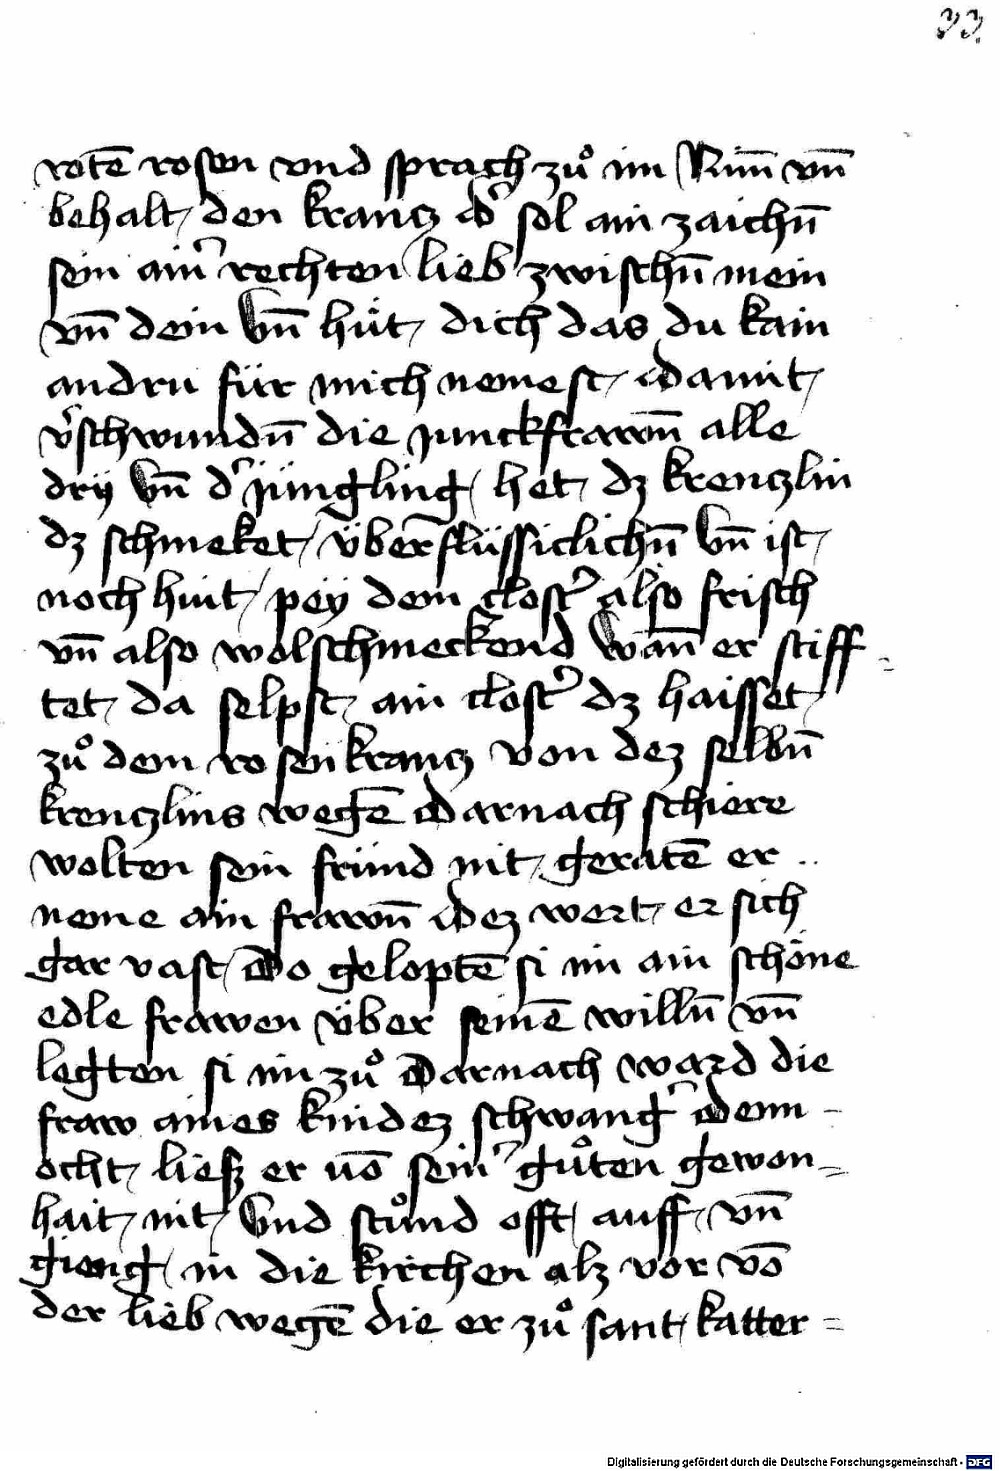 33.
rotē rosen vnd sprach zuͦ im Nim̄ vn̄
behalt den krancz dʾ sol ain zaichn̄
sein ainʾ rechten lieb zwischn̄ mein
vn̄ dein Vn̄ huͤt dich das du kain
andru für mich nemest damit
vʾschwundn̄ die junckfrawn̄ alle
drÿ Vn̄ dʾ jüngling het dz krenczlin
dz schmeket überflüssiclichn̄ Vn̄ ist
noch hiut peÿ dem clostʾ also frisch
vn̄ also wolschmeckend Wan̄ er stiff=
tet da selpst ain clostʾ dz haisset
zuͦ dem rosenkrancz von dez selbn̄
krenczlins wegē Darnach schiere
wolten sein fründ nit geratē er ..
neme ain frawn̄ Dez wert er sich
gar vast Do geloptē si im ain schöne
edle frawen über seinē willn̄ vn̄
legten si im zuͦ Darnach ward die
fraw aines kindez schwangʾ Denn-
ocht ließ er vō seinʾ guͦten gewon=
hait nit Vnd stuͦnd offt auff vn̄
gieng in die kirchen alz vor vō
der lieb wegē die er zuͦ sant katter=
Digitalisierung gefördert durch die Deutsche Forschungsgemeinschaft - DFG